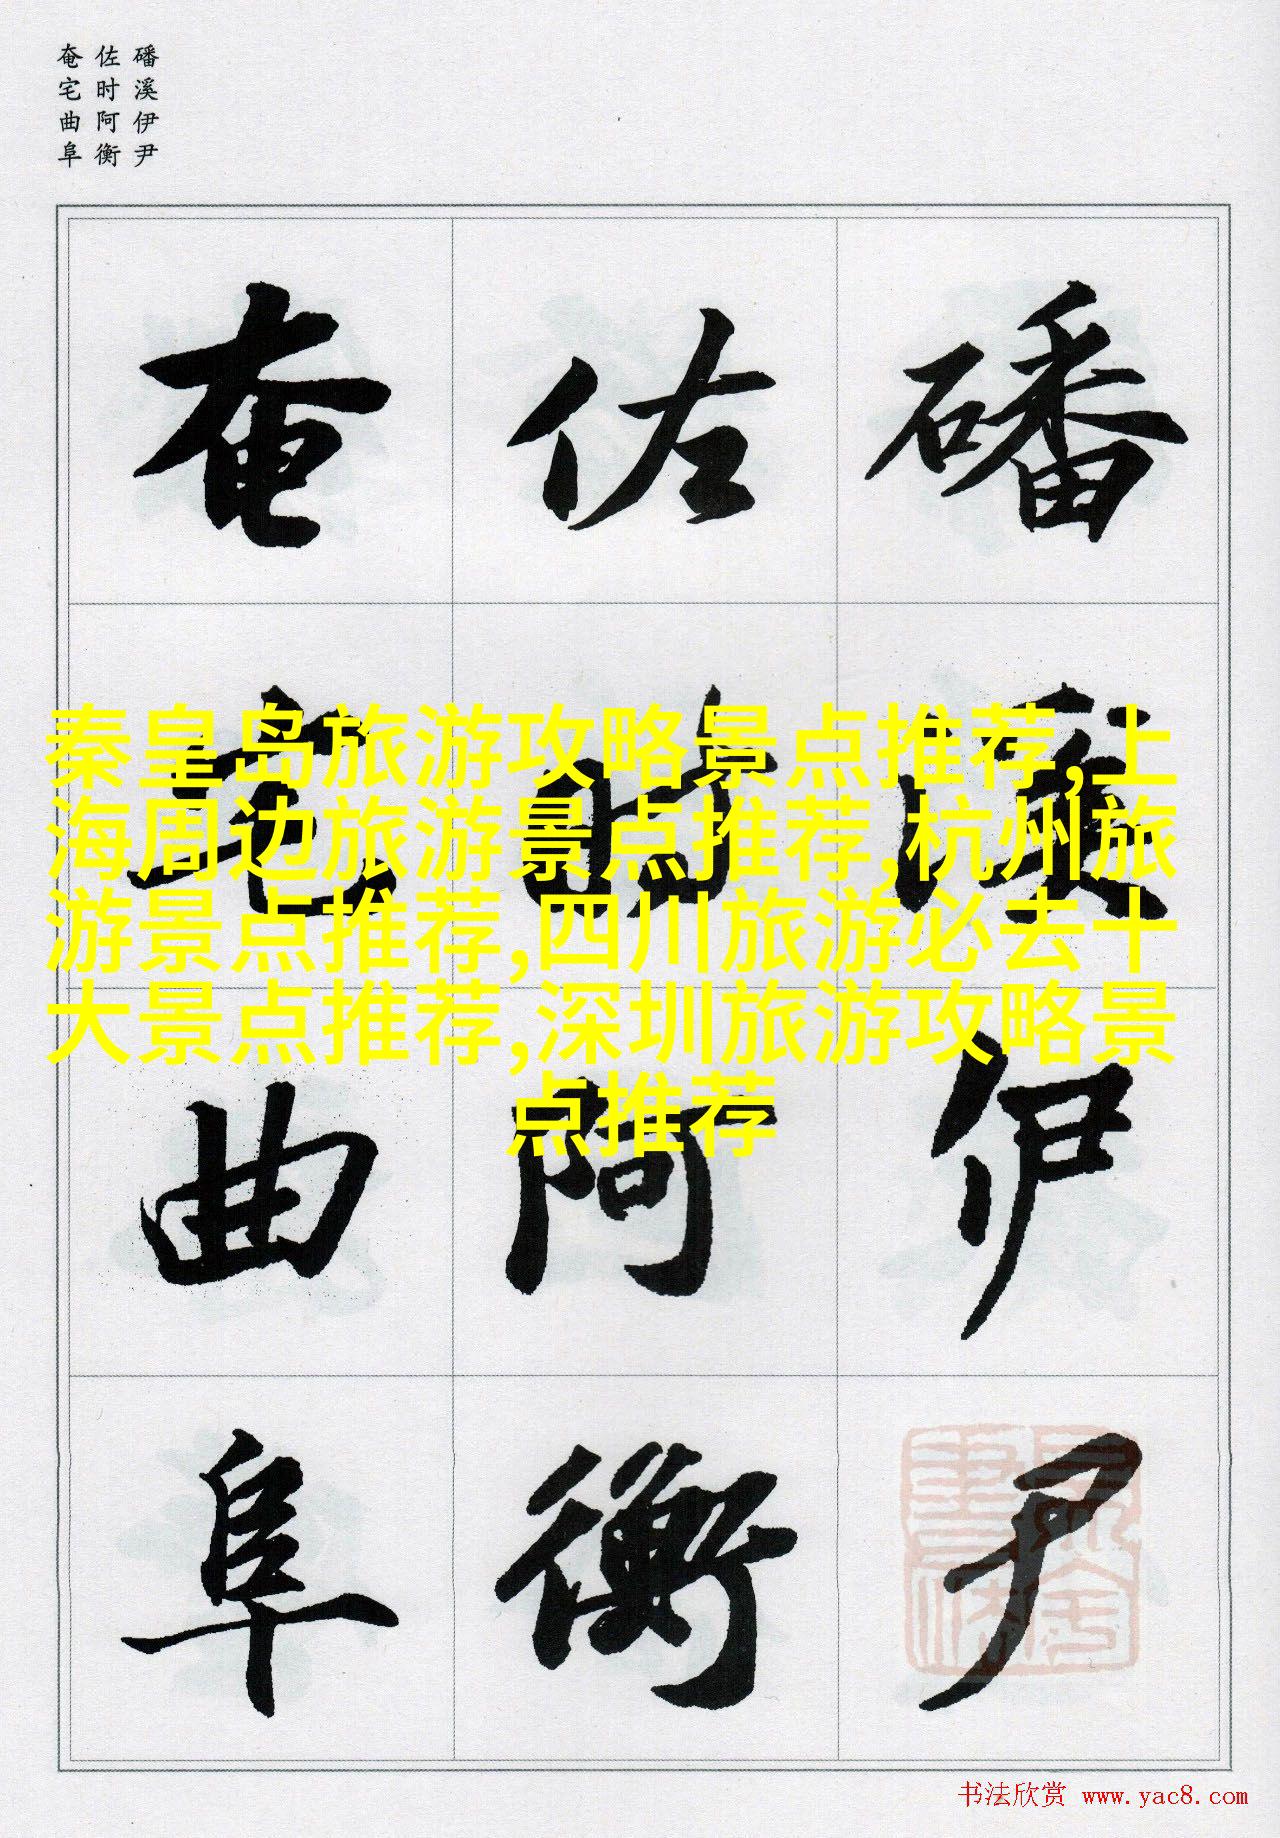 磻溪伊尹
佐时阿衡
奄宅曲阜
磻溪伊尹
佐时阿衡
奄宅曲阜
秦皇岛旅游攻略景点推荐,上
海周边旅游景点推荐,杭州旅
游景点推荐,四川旅游必去十
大景点推荐,深圳旅游攻略景
点推荐
书法欣赏 www.yac8.com